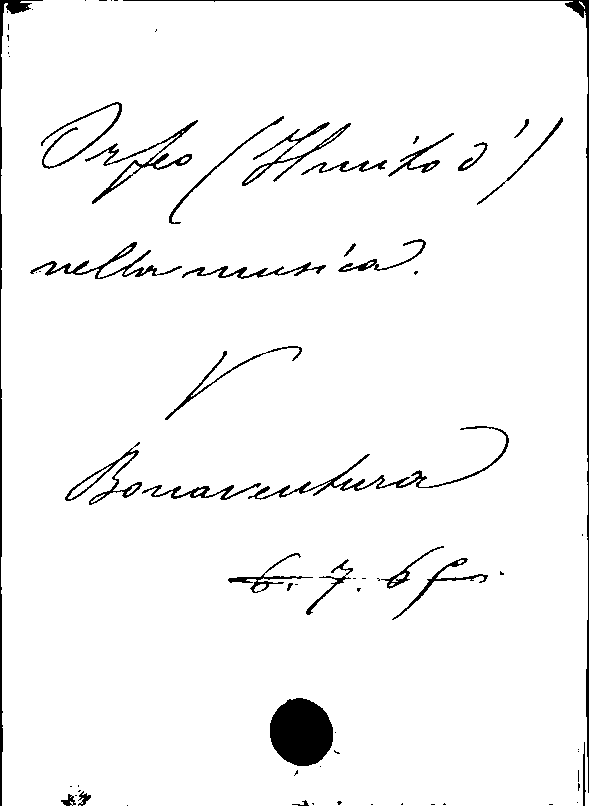 Orfeo (Il mito d')
nella musica.
V
Bonaventura
6. 7. 69.